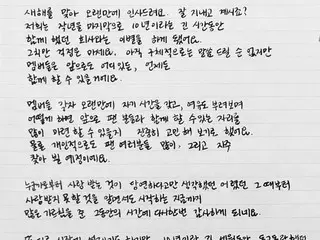 새해를 맞아 오랜만에 인사드려요. 잘 지내고 계시죠?
저희는 작년을 마지막으로 10년이라는 긴 시간동안
함께 했던 회사와는 이별을 하게 됐어요.
그치만 걱정은 마세요. 아직 구체적으로는 말씀 드릴 순 없지만
멤버들은 앞으로도 어디 있든, 언제든
함께 할 수 있을 거예요.
멤버들 각자 오랜만에 자기 시간을 갖고, 여유도 부려보며
어떻게 하면 앞으로 팬 분들과 함께 할 수 있는 자리를
많이 마련할 수 있을지 진중히 고민 해 보기로 했어요.
물론 개인적으로도 팬 여러분들 많이, 그리고 자주
찾아 뵐 예정이에요.
누군가로부터 사랑 받는 것이 당연하다고만 생각했던 어렸던 그 때부터
사랑받지 못할 것을 알면서도 시작하는 지금까지
많은 가르침을 준 그동안의 시간에 다시한번 감사하게 되네요.